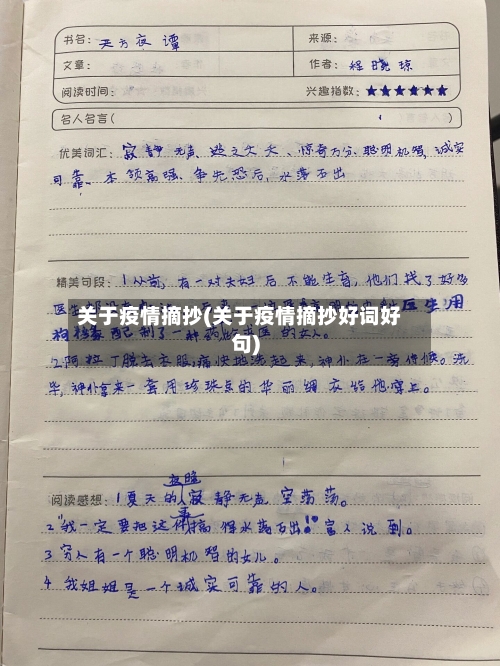 书名：天方夜谭 来源：
文章： 作者：程晓琼
阅读时间： 兴趣指数：★★★★★★
名人名言（ ）
优美词汇：寂静无声、逃之夭夭、惊奇万分、聪明机智、诚实
可靠、本领高强、争先恐后、水落石出
精美句段：1从前，有一对夫妇后不能生育，他们找了好多
医生
医生用
枸杞 配制了一种药给 的女人。
关于疫情摘抄(关于疫情摘抄好词好
句)
2.阿拉丁脱去衣服，痛快地洗起来，神仆在一旁伺候。洗
毕，神仆拿来一套用珍珠 的华丽绸衣给他穿上。
阅读感想：1夏天的夜晚寂静无声，空荡荡。
2“我一定要把这件事搞得水落石出！”富人说到。
3 穷人有一个聪明机智的女儿。
4 我姐姐是一个诚实可靠的人。